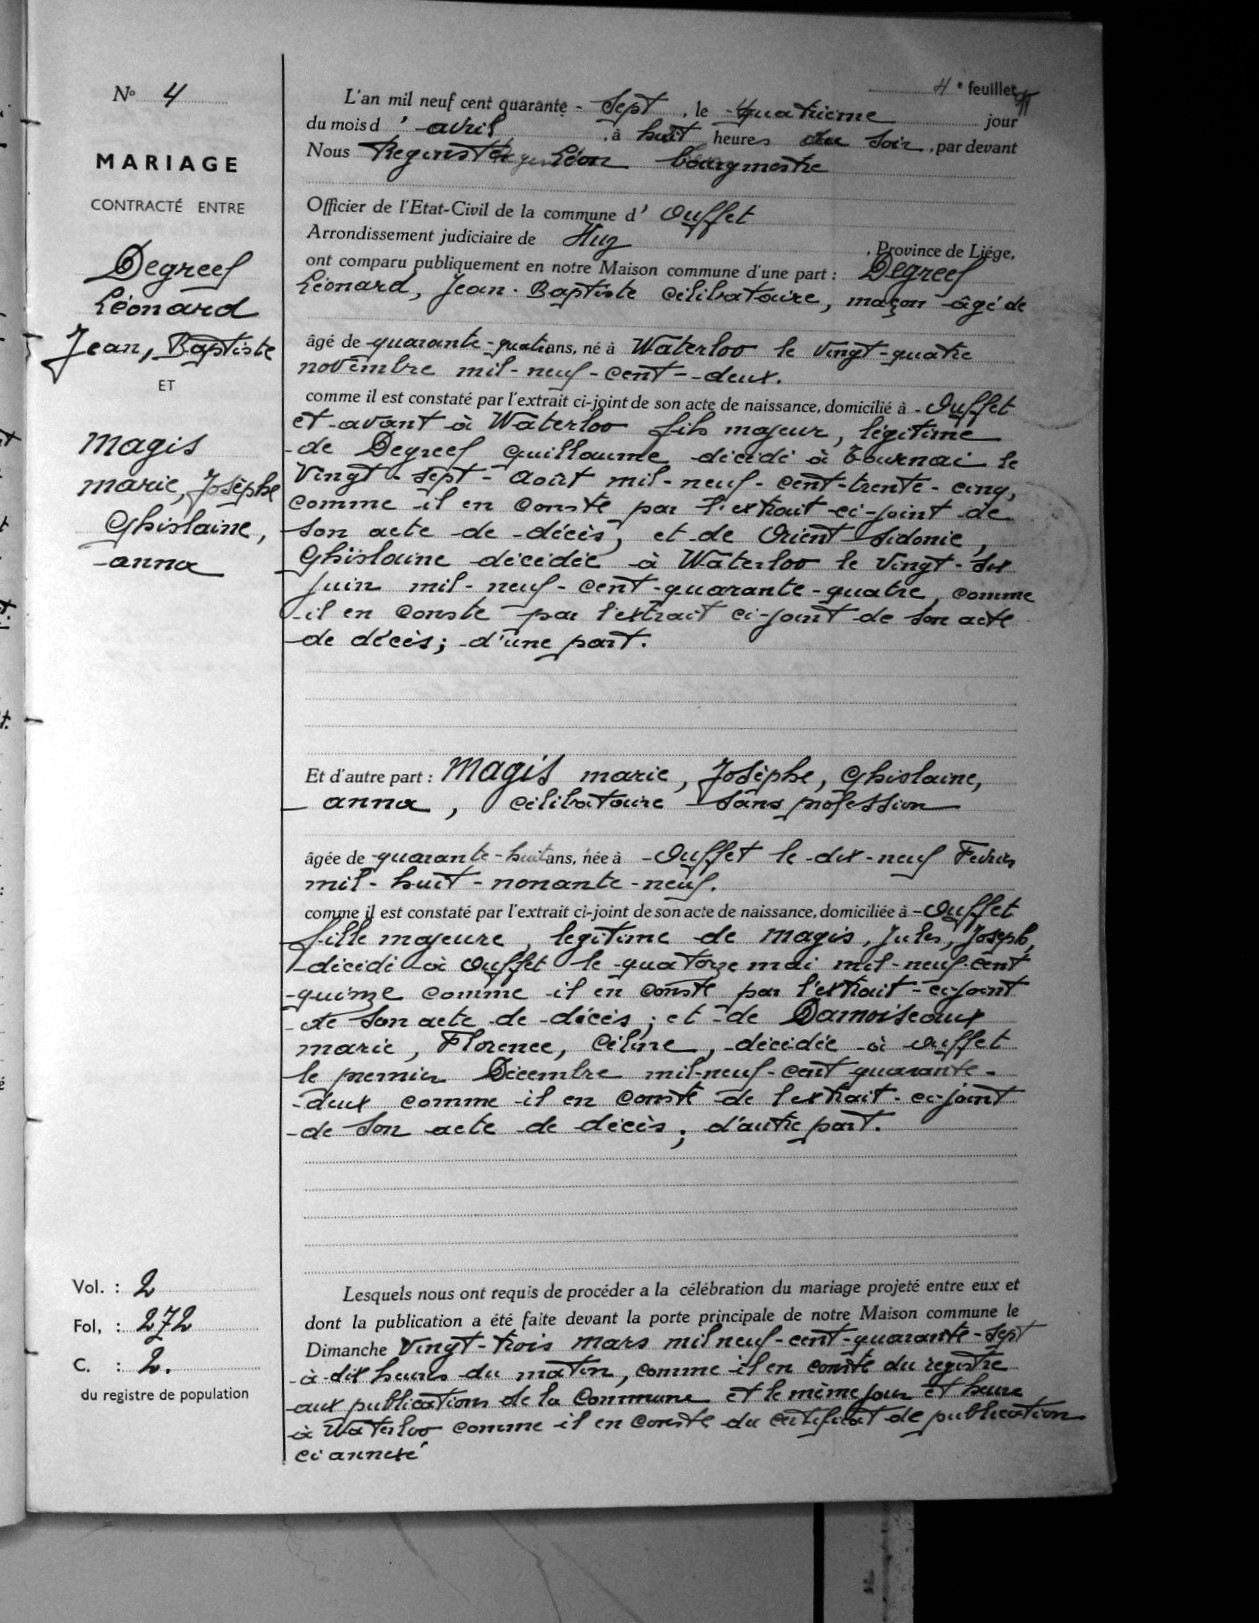 4e feuillet
N° 4
MARIAGE
CONTRACTÉ ENTRE
Degreef
Léonard
Jean, Baptiste
ET
Magis
marie, Josèphe
Ghislaine,
anna
Vol. : 2
Fol. : 272
C. : 2.
du registre de population
L'an mil neuf cent quarante - Sept, le quatrième jour
du mois d' avril, à huit heures du soir, par devant
Nous Léon bourgmestre
Officier de l'Etat-Civil de la commune d' Ouffet
Arrondissement judiciaire de Huy, Province de Liége,
ont comparu publiquement en notre Maison commune d'une part : Degreef
Léonard, Jean-Baptiste célibataire, maçon âgé de
âgé de quarante-quatre ans, né à Waterloo le vingt-quatre
novembre mil-neuf-cent-deux.
comme il est constaté par l'extrait ci-joint de son acte de naissance, domicilié à Ouffet
et avant à Waterloo fils majeur, légitime
de Degreef Guillaume décédé à Tournai le
Vingt-sept-Août mil-neuf-cent-trente-cinq,
comme il en conste par l'extrait ci-joint de
son acte de décès; et de Orient Sidonie,
Ghislaine décédée à Waterloo le vingt-six
Juin mil-neuf-cent-quarante-quatre, comme
il en conste par l'extrait ci-joint de son acte
de décès; d'une part.
Et d'autre part : Magis marie, Josèphe, Ghislaine,
anna, célibataire sans profession
âgée de quarante-huit ans, née à Ouffet le dix-neuf Février
mil-huit-nonante-neuf.
comme il est constaté par l'extrait ci-joint de son acte de naissance, domiciliée à Ouffet
fille majeure, legitime de Magis, Jules, Joseph,
décédé à Ouffet le quatorze mai mil-neuf-cent
quinze comme il en conste par l'extrait-ci-joint
de son acte de décès; et de Damoiseaux
marie, Florence, Céline, décédée à Ouffet
le premier Décembre mil-neuf-cent quarante-
deux comme il en conste de l'extrait-ci-joint
de son acte de décès; d'autre part.
Lesquels nous ont requis de procéder a la célébration du mariage projeté entre eux et
dont la publication a été faite devant la porte principale de notre Maison commune le
Dimanche Vingt-trois mars mil neuf-cent-quarante-sept
à dix heures du matin, comme il en conste du registre
aux publications de la Commune et le même jour et heure
à Waterloo comme il en conste du certificat de publication
ci annexé